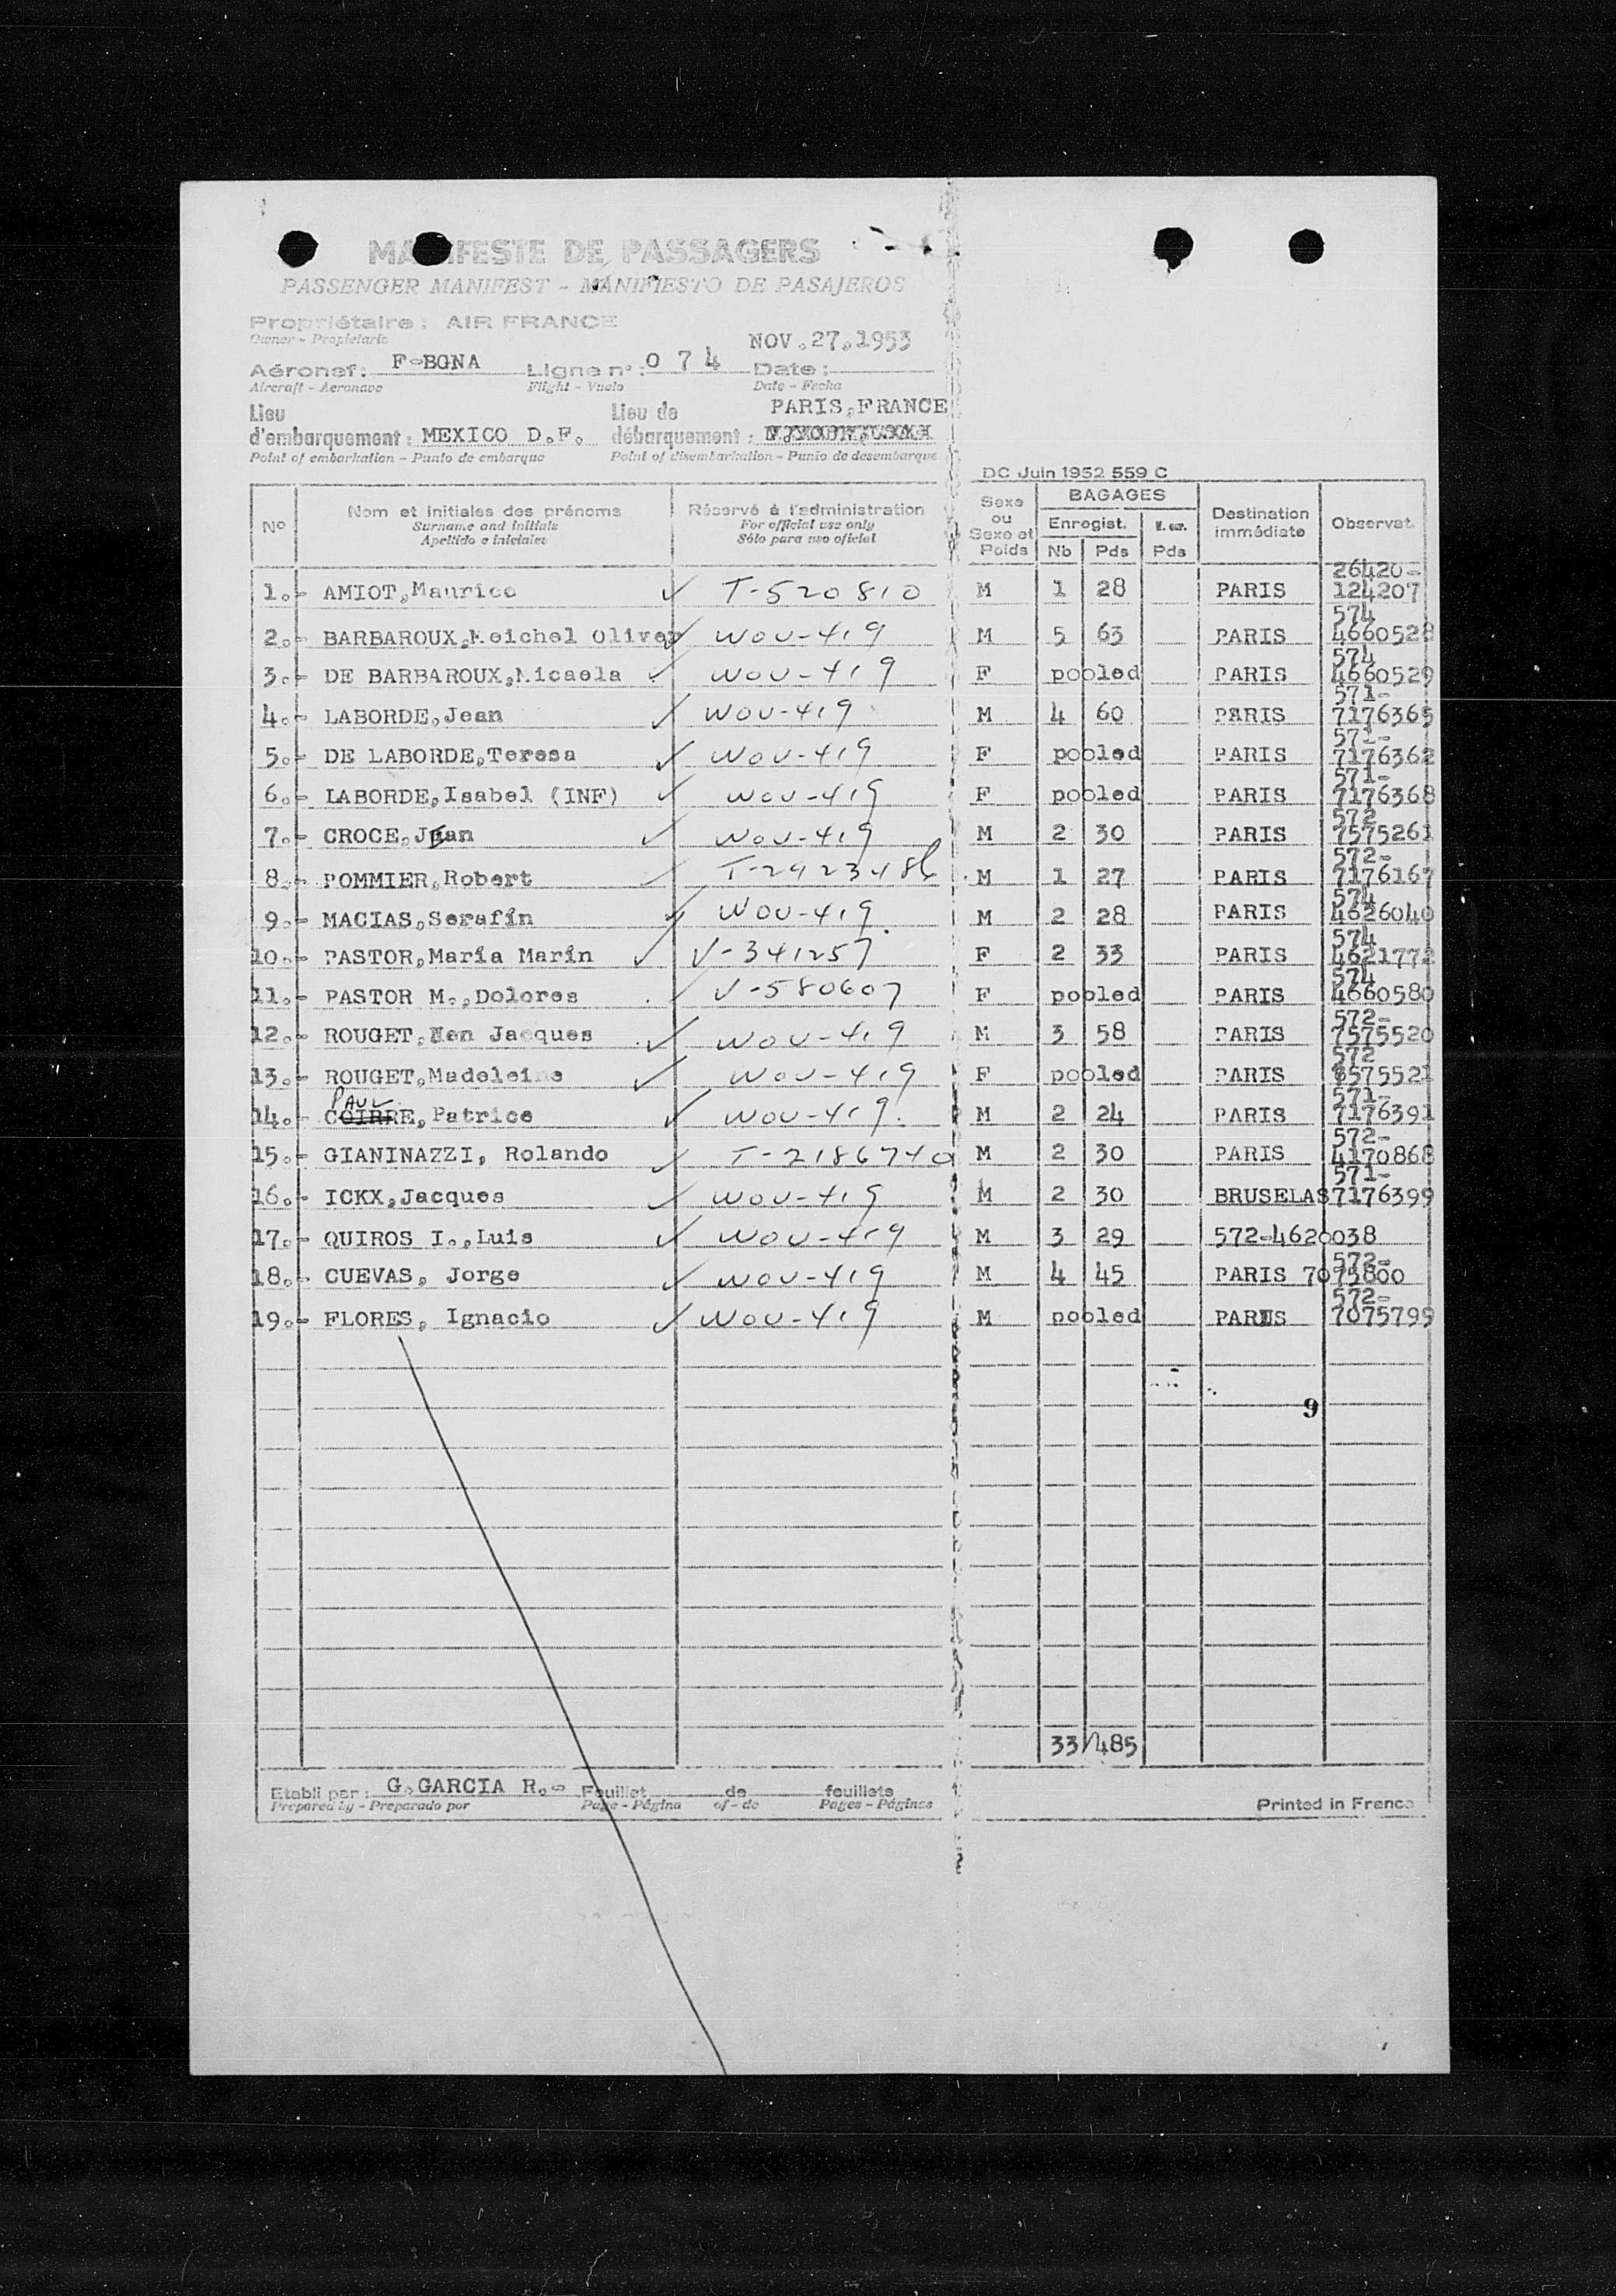 MANIFESTE DE PASSAGERS
PASSENGER MANIFEST - MANIFIESTO DE PASAJEROS
Propriétaire : AIR FRANCE
Owner - Propietario
NOV.27.1953
Aéronef : F-BGNA Ligne n° : 0 7 4 Date :
Aircraft - Aeronave Flight - Vuelo Date - Fecha
Lieu Lieu de PARIS,FRANCE
d'embarquement : MEXICO D.F. débarquement :
Point of embarkation - Punto de embarque Point of disembarkation - Punio de desembarque
DC Juin 1952 559 C
N° Nom et initiales des prénoms Réservé à l'administration Sexe ou Sexe et Poids BAGAGES Destination immédiate Observat.
Surname and initials For official use only Enregist.
Apellido e iniciales Sólo para uso oficial Nb Pds Pds
1.- AMIOT,Maurice ✓ T-520810 M 1 28 PARIS 26420- 124207
2.- BARBAROUX,Meichel Oliver ✓ WOU-419 M 5 63 PARIS 574 4660528
3.- DE BARBAROUX,Micaela ✓ WOU-419 F pooled PARIS 574 4660529
4.- LABORDE,Jean ✓ WOU-419 M 4 60 PARIS 571- 7176365
5.- DE LABORDE,Teresa ✓ WOU-419 F pooled PARIS 571- 7176362
6.- LABORDE,Isabel (INF) ✓ WOU-419 F pooled PARIS 571- 7176368
7.- CROCE,Jean ✓ WOU-419 M 2 30 PARIS 572 7575261
8.- POMMIER,Robert ✓ M 1 27 PARIS 572- 7176167
9.- MACIAS,Serafín ✓ WOU-419 M 2 28 PARIS 574 4626040
10.- PASTOR,María Marín ✓ V-341257 F 2 33 PARIS 574 4621772
11.- PASTOR M.,Dolores ✓ V-580607 F pooled PARIS 574 4660580
12.- ROUGET, Jacques ✓ WOU-419 M 3 58 PARIS 572- 7575520
13.- ROUGET,Madeleine ✓ WOU-419 F pooled PARIS 572 7575521
PAUL
14.- COIRRE,Patrice ✓ WOU-419. M 2 24 PARIS 571- 7176391
15.- GIANINAZZI, Rolando ✓ T-2186740 M 2 30 PARIS 572- 4170868
16.- ICKX,Jacques ✓ WOU-419 M 2 30 BRUSELAS 571- 7176399
17.- QUIROS I.,Luis ✓ WOU-419 M 3 29 572-4620038
18.- CUEVAS, Jorge ✓ WOU-419 M 4 45 PARIS 572- 7075800
19.- FLORES, Ignacio ✓ WOU-419 M pooled PARIS 572- 7075799
9
33 485
Etabli par : G.GARCIA R.- Feuillet de feuillets
Prepared by - Preparado por Page - Página of - de Pages - Páginas
Printed in France